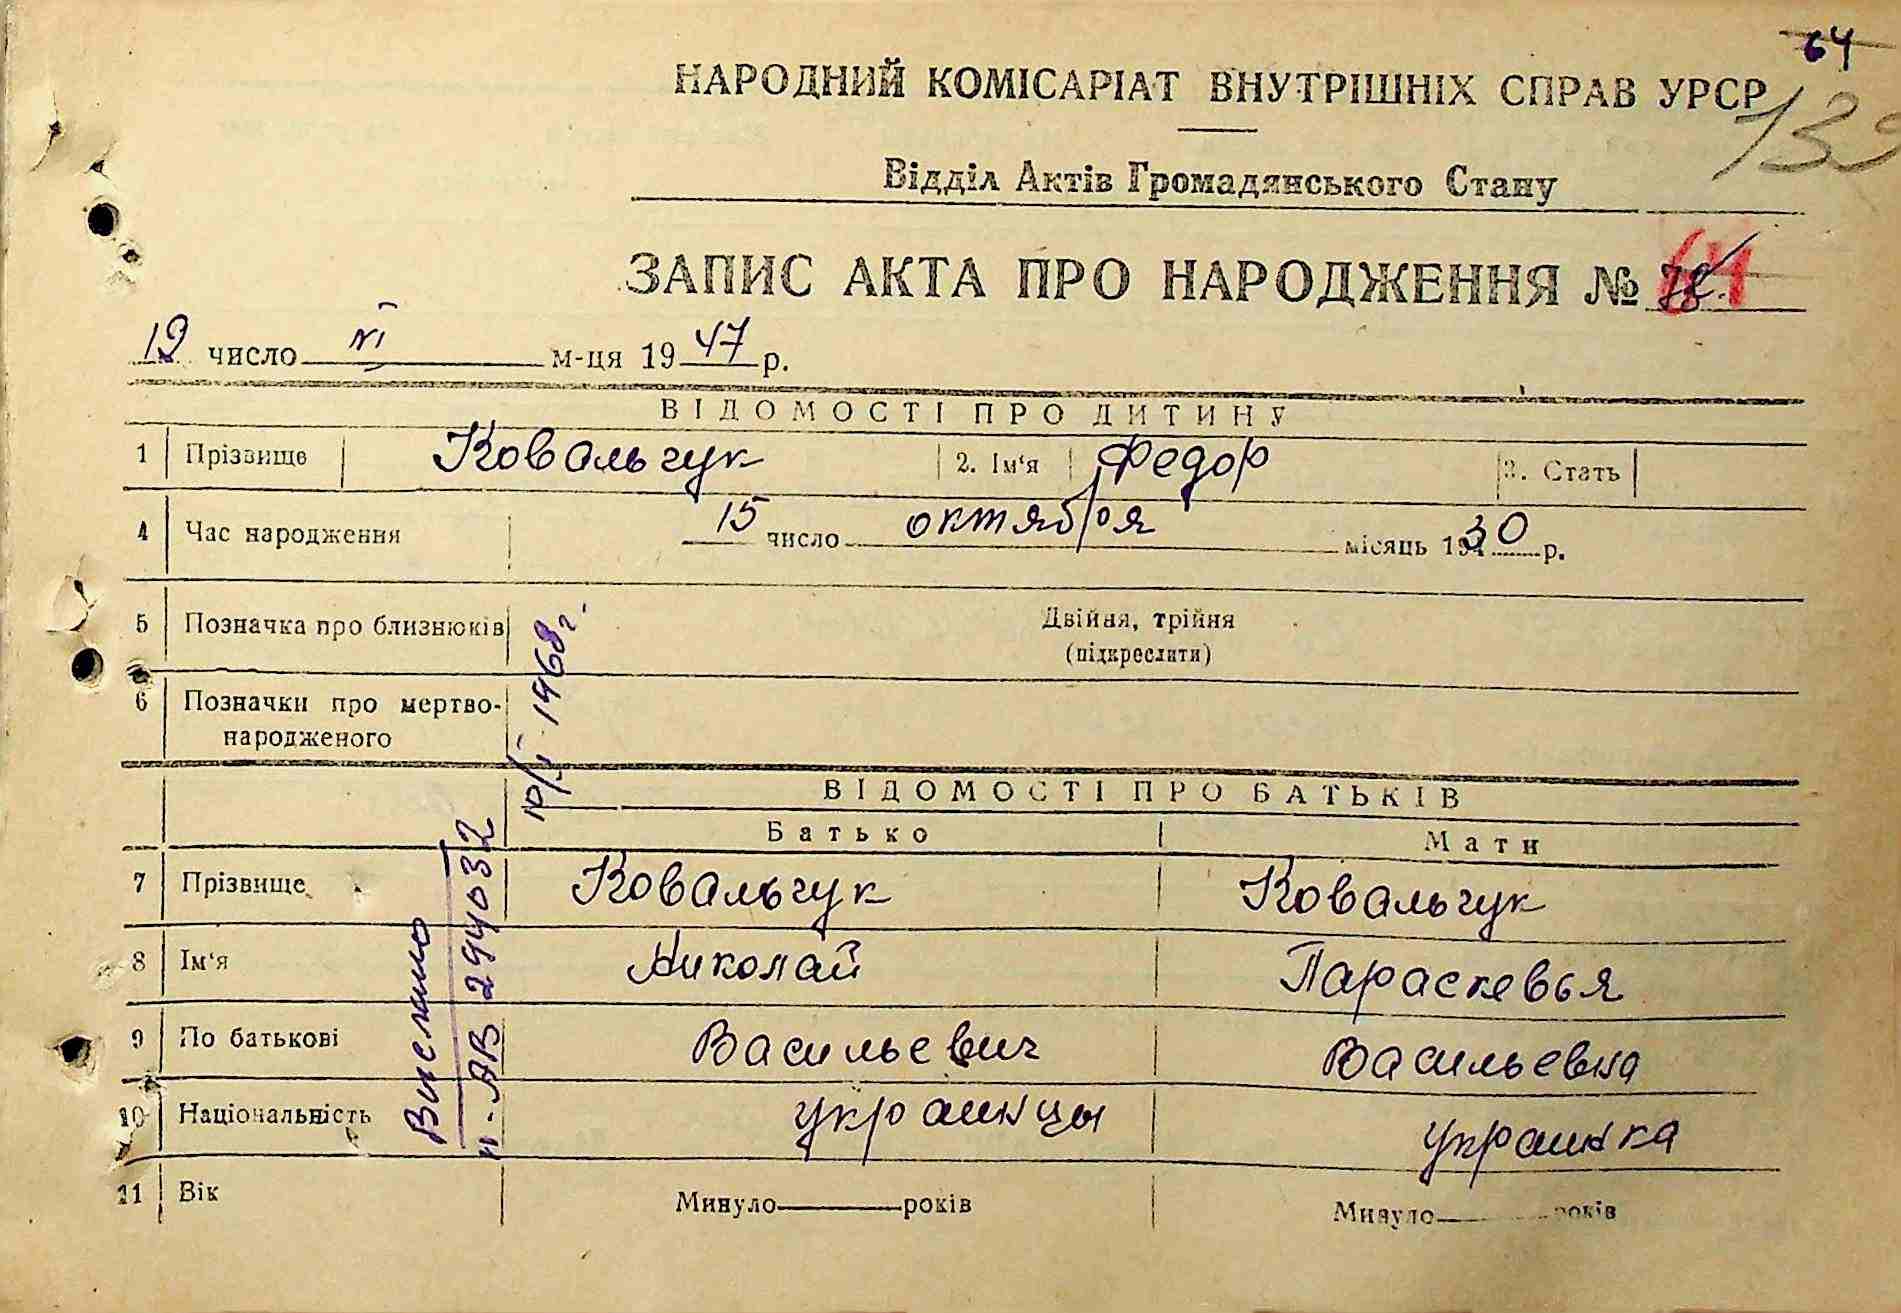 64
НАРОДНИЙ КОМІСАРІАТ ВНУТРІШНІХ СПРАВ УРСР
139
Відділ Актів Громадянського Стану
ЗАПИС АКТА ПРО НАРОДЖЕННЯ № 78 64
19 число VI м-ця 1947 р.
ВІДОМОСТІ ПРО ДИТИНУ
1 Прізвище Ковальчук 2. Ім'я Федор 3. Стать
4 Час народження 15 число октября місяць 1930 р.
5 Позначка про близнюків Двійня, трійня
(підкреслити)
6 Позначки про мертво-
народженого
ВІДОМОСТІ ПРО БАТЬКІВ
Батько Мати
7 Прізвище Ковальчук Ковальчук
8 Ім'я Николай Параскевья
9 По батькові Васильевич Васильевна
10 Національність украинцы украинка
11 Вік Минуло років Минуло років
Вислано
п. АВ 294032
1968 г.